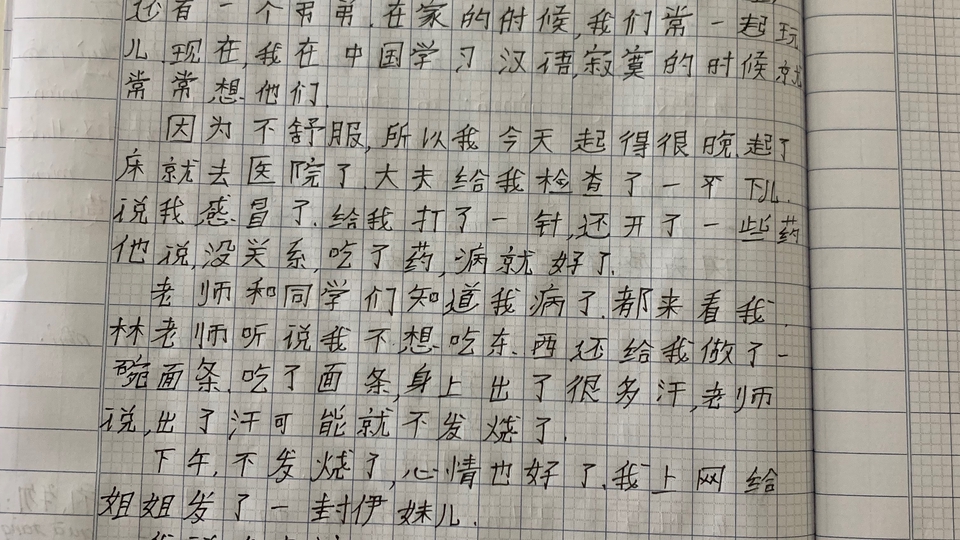 还有一个弟弟.在家的时候,我们常一起玩
儿.现在,我在中国学习汉语,寂寞的时候就
常常想他们.
因为不舒服,所以我今天起得很晚.起了
床就去医院了.大夫给我检查了一下儿.
说我感冒了.给我打了一针,还开了一些药
他说,没关系,吃了药,病就好了.
老师和同学们知道我病了.都来看我.
林老师听说我不想吃东西还给我做了一
碗面条.吃了面条,身上出了很多汗,老师
说,出了汗可能就不发烧了.
下午,不发烧了,心情也好了.我上网给
姐姐发了一封伊妹儿.